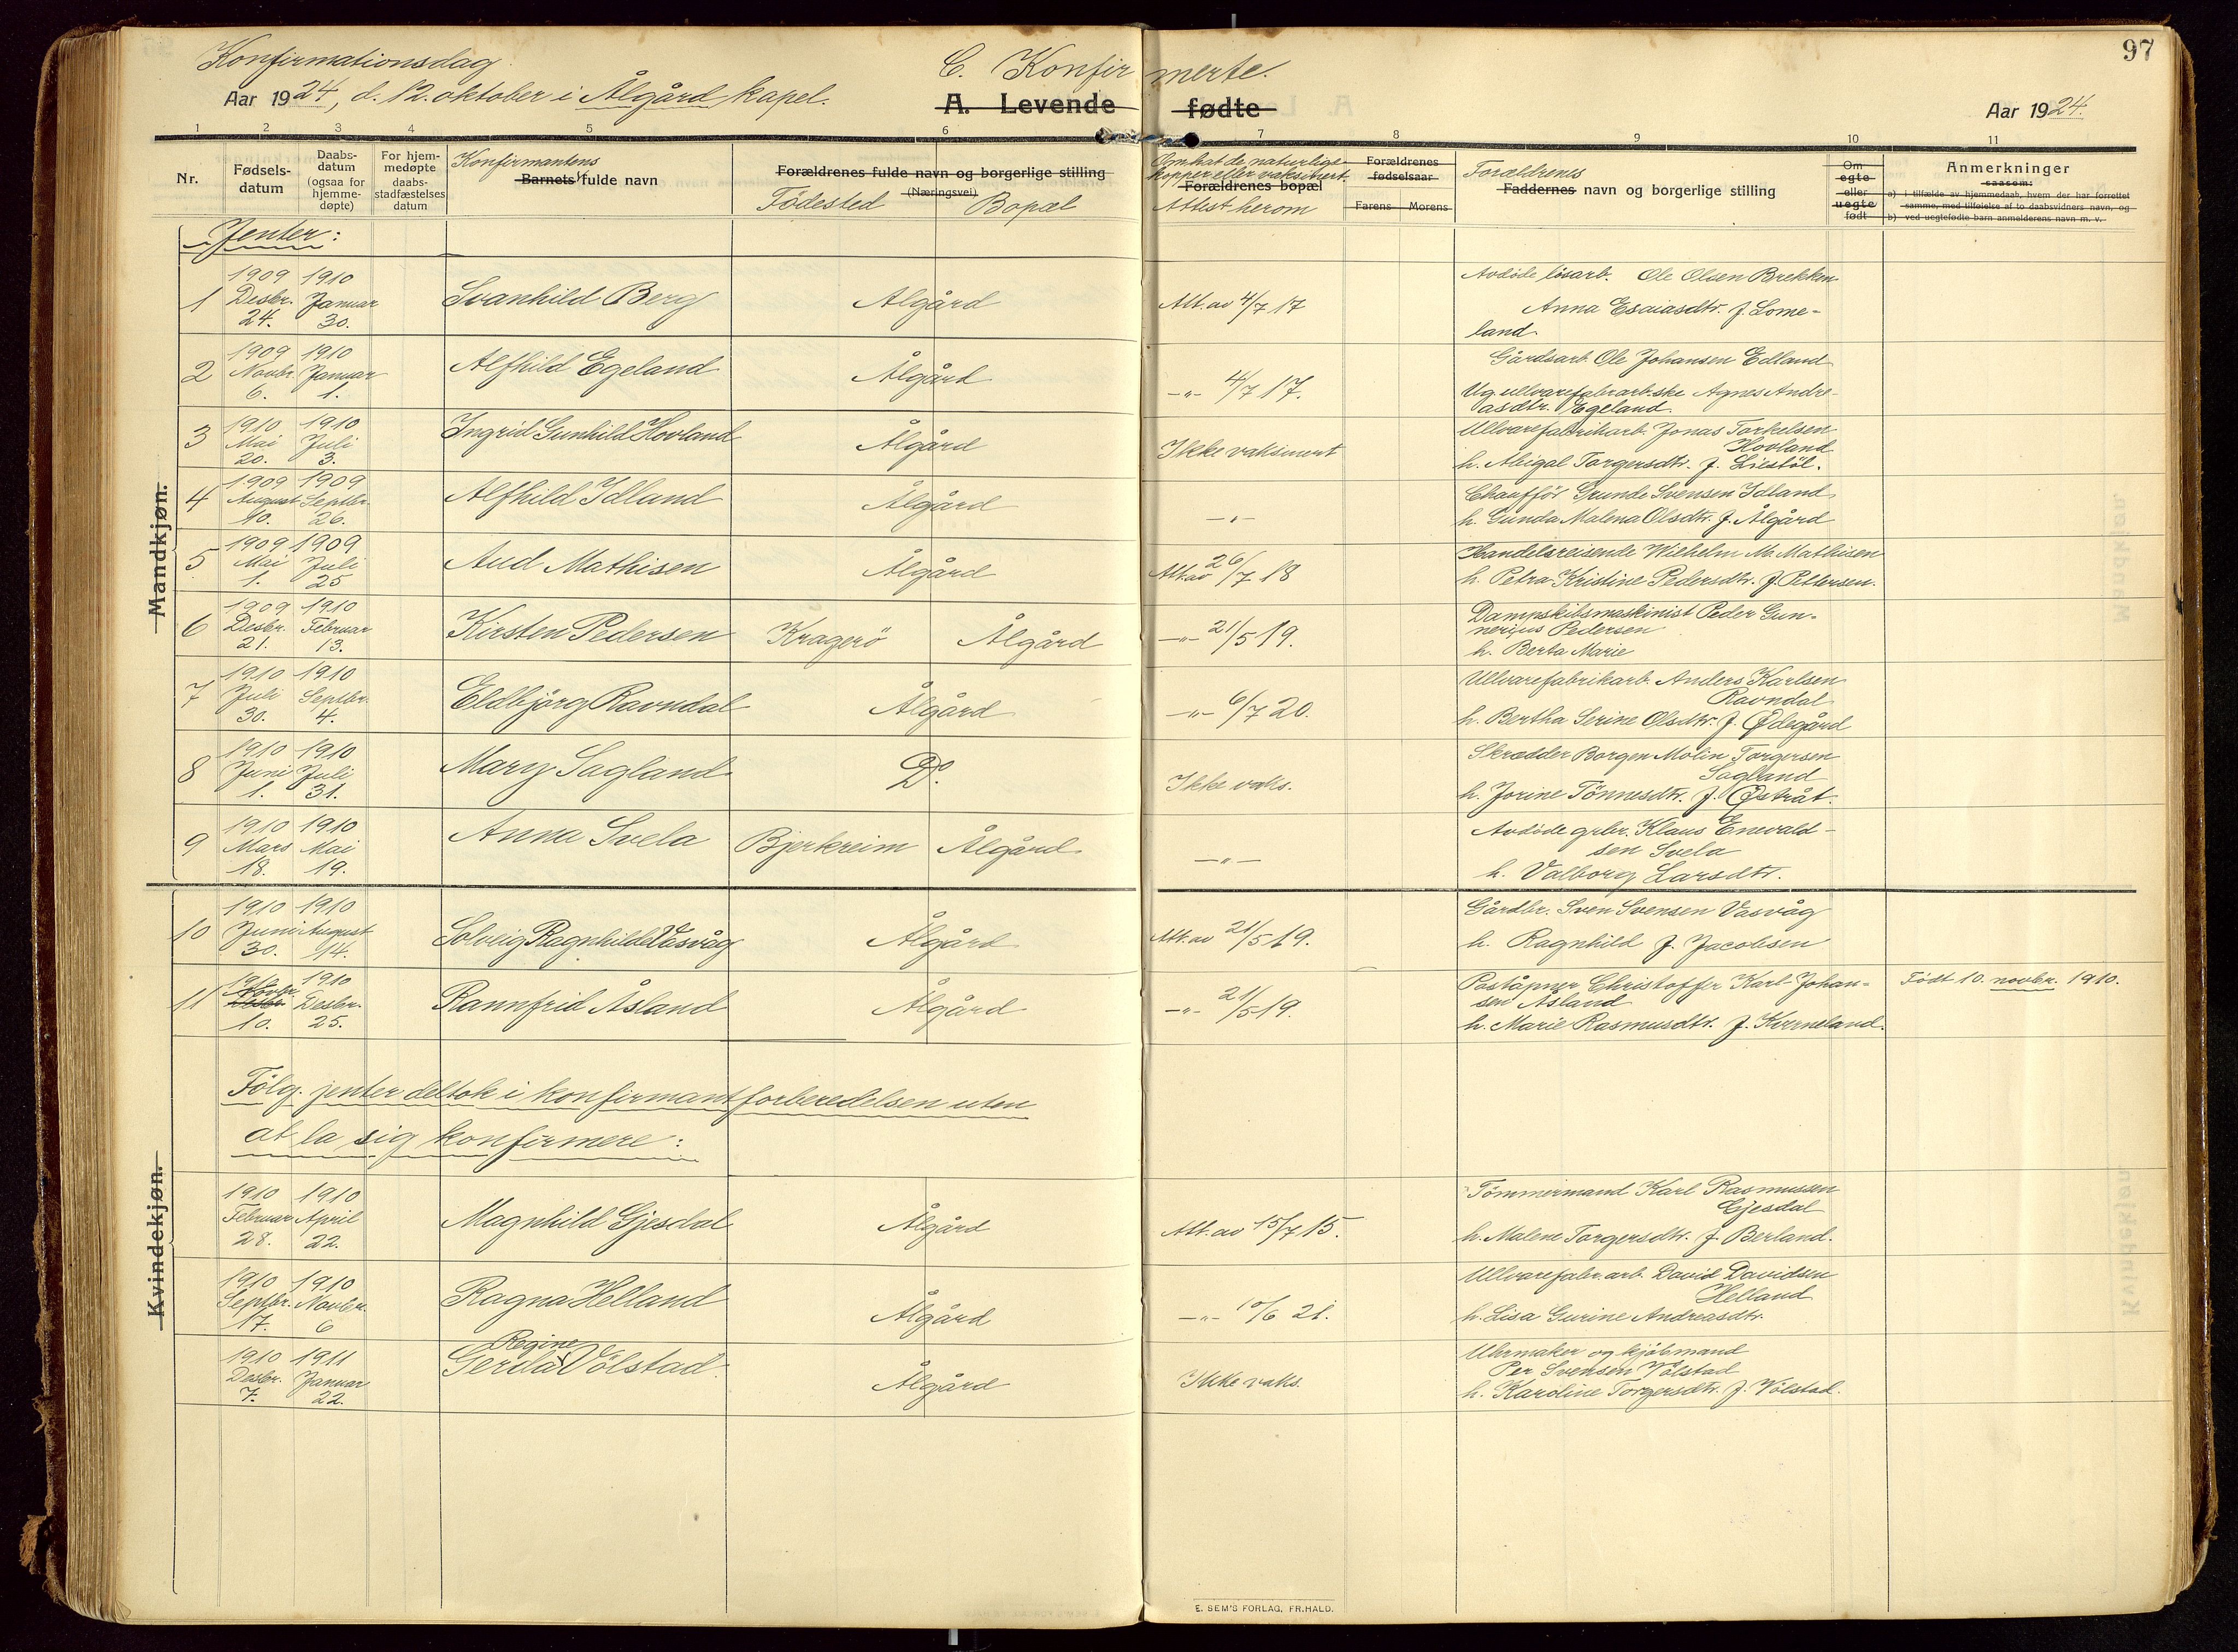 97
Konfirmationsdag
Aar 1924, d. 12. oktober i Ålgård kapel.
C. Konfirmerte.
A. Levende fødte
Aar 1924.
1 2 3 4 5 6 7 8 9 10 11
Nr.
Fødsels-
datum
Daabs-
datum
(ogsaa for
hjemme-
døpte)
For hjem-
medøpte
daabs-
stadfæstelses
datum
Konfirmantens
Barnets fulde navn
Forældrenes fulde navn og borgerlige stilling
(Næringsvei)
Fødested Bopæl
Om hat de naturlige
kopper eller vaksinert.
Forældrenes bopæl
Attest herom
Forældrenes
fødselsaar
Farens Morens
Forældrenes
Faddernes navn og borgerlige stilling
Om
egte
eller
uegte
født
Anmerkninger
saasom:
a) i tilfælde av hjemmedaab, hvem der har forrettet
samme, med tilføielse af to daabsvidners navn, og
b) ved uegtefødte barn anmelderens navn m. v.
Mandkjøn.
Jenter:
1 1909 Desbr. 24. 1910 Januar 30. Svanhild Berg Ålgård Att. av 4/7 17 Avdöde lösarb. Ole Olsen Brekken
Anna Esaiasdtr. f. Lome-
land
2 1909 Novbr. 6. 1910 Januar 1. Alfhild Egeland Ålgård -"- 4/7 17. Gårdsarb. Ole Johansen Edland
Ug. ullvarefabrarb.ske Agnes Andre-
asdtr. Egeland.
3 1910 Mai 20. 1910 Juli 3. Ingrid Gunhild Hovland Ålgård Ikke vaksinert Ullvarefabrikarb. Jonas Torkelsen
Hovland
h. Abigal Torgersdtr. f. Liestöl.
4 1909 August 10. 1909 Septbr. 26. Alfhild Idland Ålgård -"- Chauffför Grunde Svensen Idland
h. Gunda Malena Olsdtr. f. Ålgård
5 1909 Mai 1. 1909 Juli 25 Aud Mathisen Ålgård Att. av 26/7 18 Handelsreisende Wilhelm M. Mathisen
h. Petra Kristine Pedersdtr. f. Pettersen.
6 1909 Desbr. 21. 1910 Februar 13. Kirsten Pedersen Kragerö Ålgård -"- 21/5 19. Dampskibsmaskinist Peder Gun-
nerius Pedersen
h. Berta Marie
7 1910 Juli 30. 1910 Septbr. 4. Eldbjörg Ravndal Ålgård -"- 6/7 20. Ullvarefabrikarb. Anders Karlsen
Ravndal
h. Bertha Serine Olsdtr. f. Ødegård
8 1910 Juni 1. 1910 Juli 31. Mary Sagland Do. Ikke vaks. Skrædder Borgen Molin Torgersen
Sagland
h. Jorine Tönnesdtr. f. Østråt.
9 1910 Mars 18. 1910 Mai 19. Anna Svela Bjerkreim Ålgård -"- Avdöde grbr. Klaus Enevald-
sen Svela
h. Valborg Larsdtr.
10 1910 Juni 30. 1910 August 14. Solveig Ragnhild Vasvåg Ålgård Att. av 21/5 19. Gårdbr. Sven Svensen Vasvåg
h. Ragnhild f. Jacobsen
11 1910 Novbr. Desbr. 10. 1910 Desbr. 25. Rannfrid Åsland Ålgård -"- 21/5 19. Poståpner Christoffer Karl Johan-
sen Åsland
h. Marie Rasmusdtr. f. Kverneland.
Födt 10. novbr. 1910.
Kvindekjøn.
Fölg. jenter deltok i konfirmantforberedelsen uten
at la sig konfirmere:
1910 Februar 28. 1910 April 22. Magnhild Gjesdal Ålgård Att. av 15/7 15. Tömmermand Karl Rasmussen
Gjesdal
h. Malene Torgersdtr. f. Berland.
1910 Septbr. 17. 1910 Novbr. 6 Ragna Helland Ålgård -"- 10/6 21. Ullvarefabr. arb. David Davidsen
Helland
h. Lisa Gurine Andreasdtr.
1910 Desbr. 7. 1911 Januar 22. Gerda Regine Völstad. Ålgård Ikke vaks. Uhrmaker og kjöbmand
Per Svensen Völstad
h. Karoline Torgersdtr. f. Völstad.
E. SEM'S FORLAG, FR.HALD.